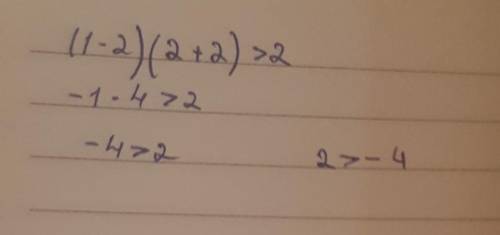 (1-2)(2+2)>2
-1·4>2
-4>2 2>-4